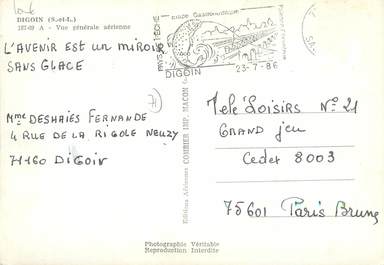 DIGOIN (S.-et-L.)
187-69 A - Vue générale aérienne
L'AVENIR EST UN MIROIR
SANS GLACE
Mme DESHAIES FERNANDE
4 RUE DE LA RIGOLE NEUZY
71160 DIGOIN
71
PAYS DE PÊCHE
ETAPE GASTRONOMIQUE
DIGOIN
23-7-86
Editions Aériennes COMBIER IMP. MACON
Télé Loisirs N° 21
GRAND jeu
Cedex 8003
75601 Paris Brune
Photographie Véritable
Reproduction Interdite